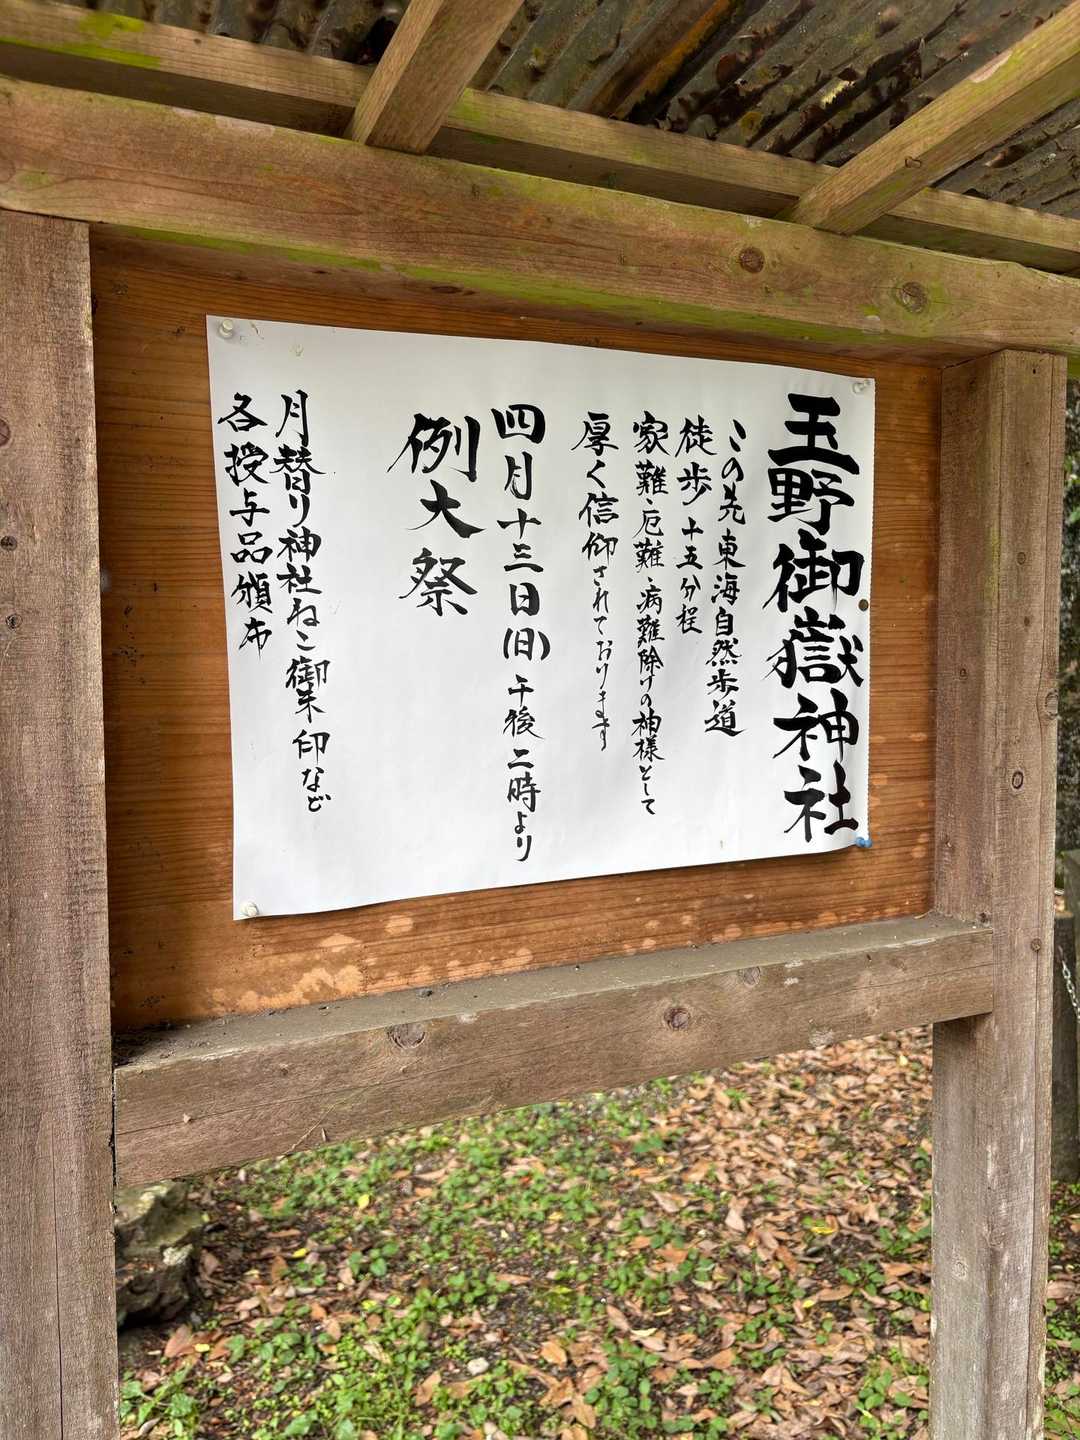 玉野御嶽神社
この先東海自然歩道
徒歩十五分程
家難・厄難・病難除けの神様として
厚く信仰されております
四月十三日(日)午後二時より
例大祭
月替り神社ねこ御朱印など
各授与品頒布